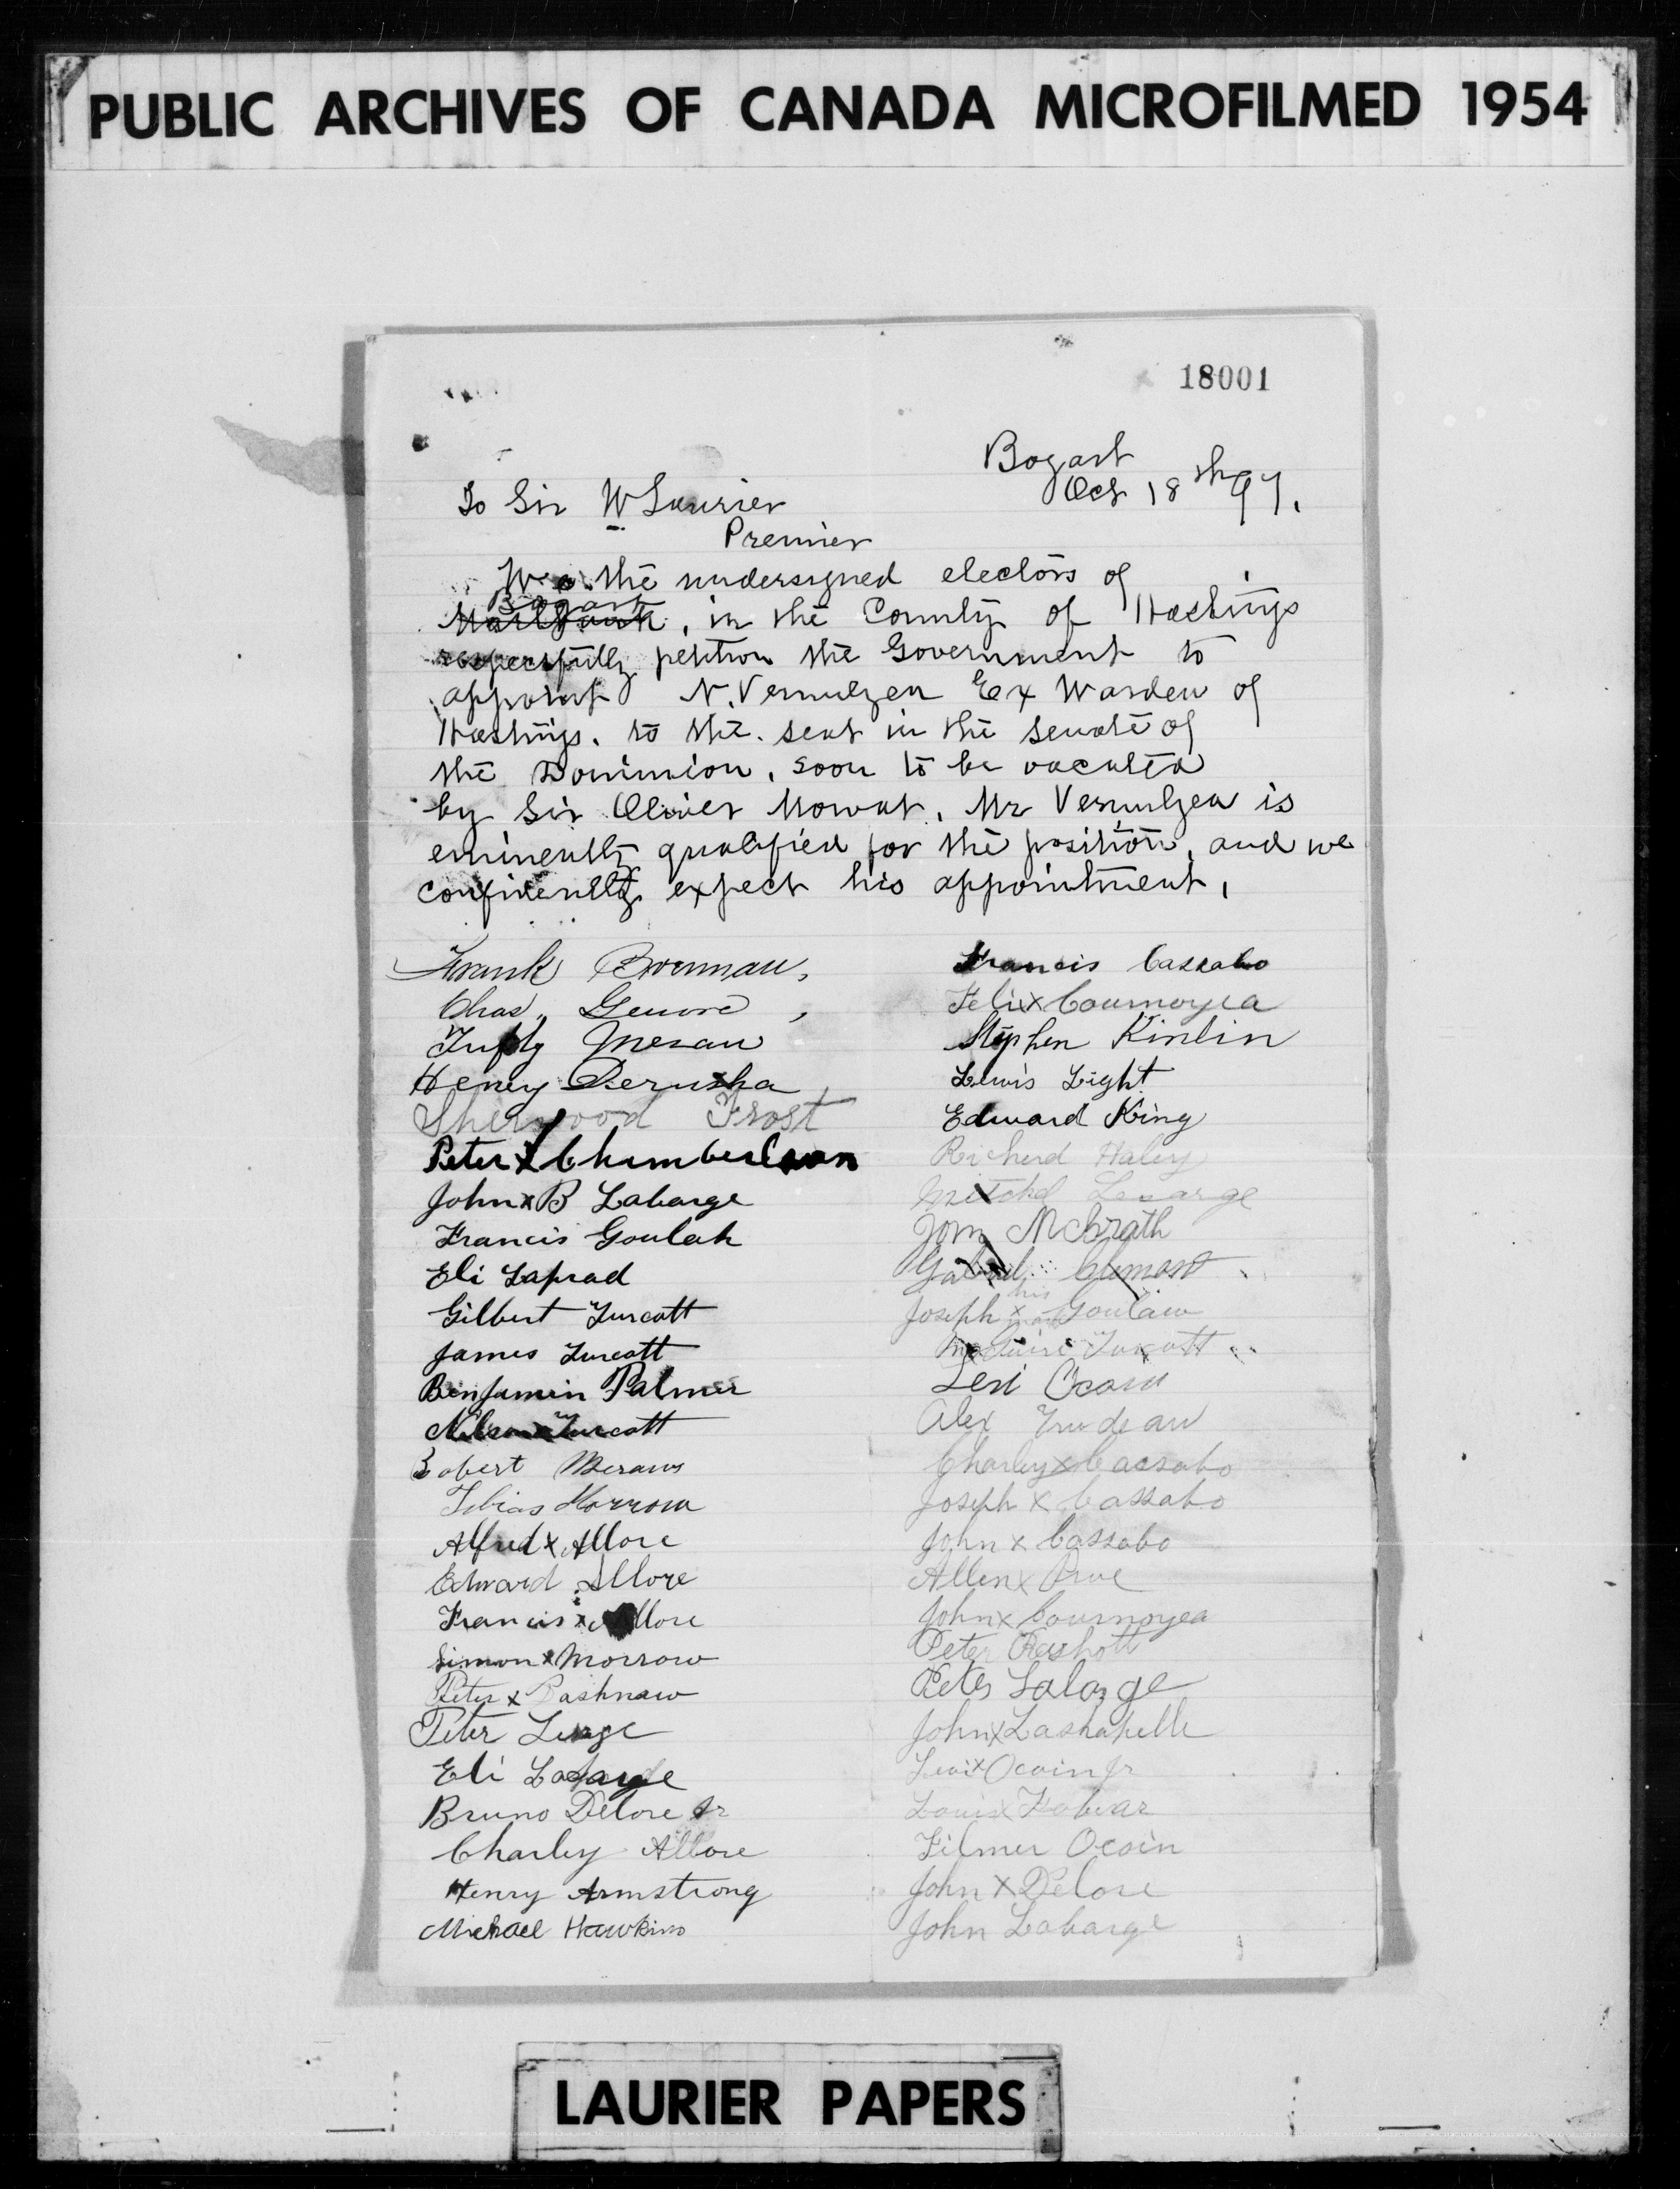 PUBLIC ARCHIVES OF CANADA MICROFILMED 1954
18001
Bogart
Oct 18th 97.
To Sir W Laurier
Premier
We the undersigned electors of
Bogart
Marlbank, in the County of Hastings
respectfully petition the Government to
appoint N. Vermilyea Ex Warden of
Hastings. to the seat in the Senate of
the Dominion, soon to be vacated
by Sir Oliver Mowat. Mr Vermilyea is
eminently qualified for the position, and we
confidently expect his appointment.
Frank Brennan,
Chas. Genore,
Meraw
Henry Derusha
Sherwood Frost
Peter X Chamberlain
John X B Labarge
Francis Goulah
Eli Laprad
Gilbert Turcott
James Turcott
Benjamin Palmer
Nelson X Turcott
Robert Meraw
Tobias Morrow
Alfred X Allore
Edward Allore
Francis X Allore
Simon X Morrow
Peter X Pashnaw
Peter
Eli Labarge
Bruno Delore Sr
Charley Allore
Henry Armstrong
Michael Hawkins
Francis Cassabo
Felix X Cournoyea
Stephen Kinlin
Lewis Light
Edward King
Richerd Haley
Mitchel
John McGrath
Gabriel Clemost
Joseph his X mark Goulaw
Turcott
Levi Ocoin
Alex Trudeau
Charley X Cassabo
Joseph X Cassabo
John X Cassabo
Allen X Prue
John X Cournoyea
Peter
Peter Labarge
John X Lashapelle
Levi X Ocoin Jr
Louis X
Filmer Ocoin
John X Delore
John Labarge
LAURIER PAPERS